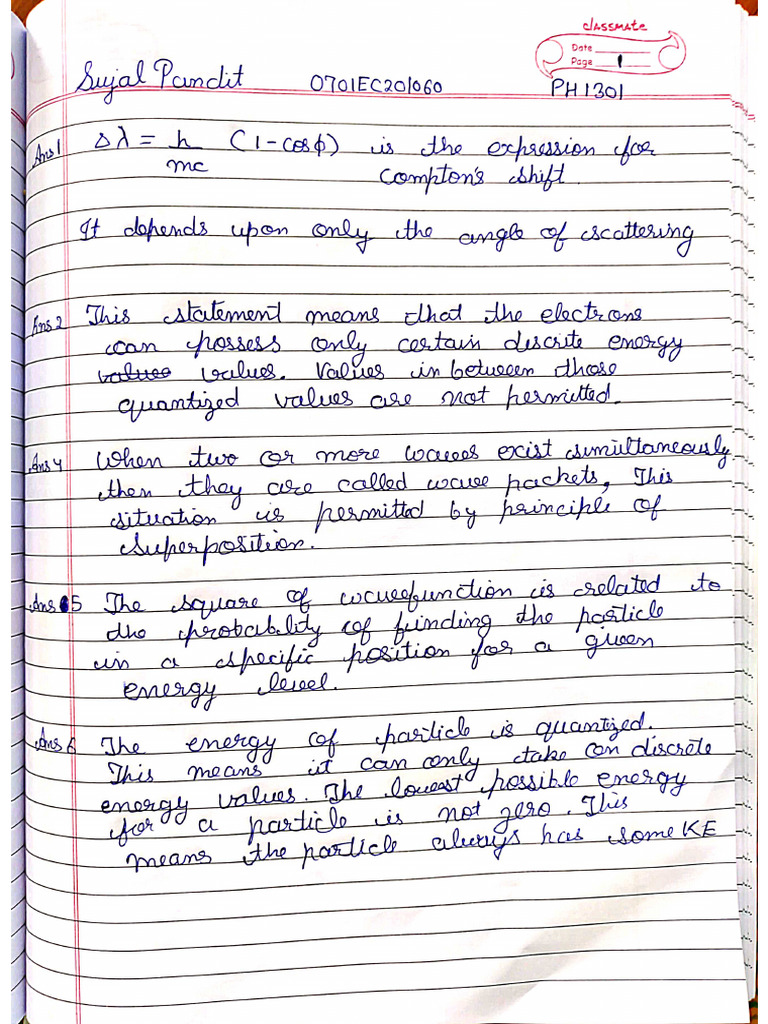 classmate
Date
Page 1
Sujal Pandit 0701EC201060 PH1301
Ans 1 Δλ = h (1-cosϕ) is the expression for
mc Compton's shift.
It depends upon only the angle of scattering
Ans 2 This statement means that the electrons
can possess only certain discrite energy
values values. Values in between those
quantized values are not permitted.
Ans 4 When two or more waves exist simultaneously
then they are called wave packets, This
situation is permitted by principle of
superposition.
Ans 5 The square of wavefunction is related to
the probability of finding the particle
in a specific position for a given
energy level.
Ans 6 The energy of particle is quantized.
This means it can only take on discrete
energy values. The lowest possible energy
for a particle is not zero. This
means the particle always has some KE